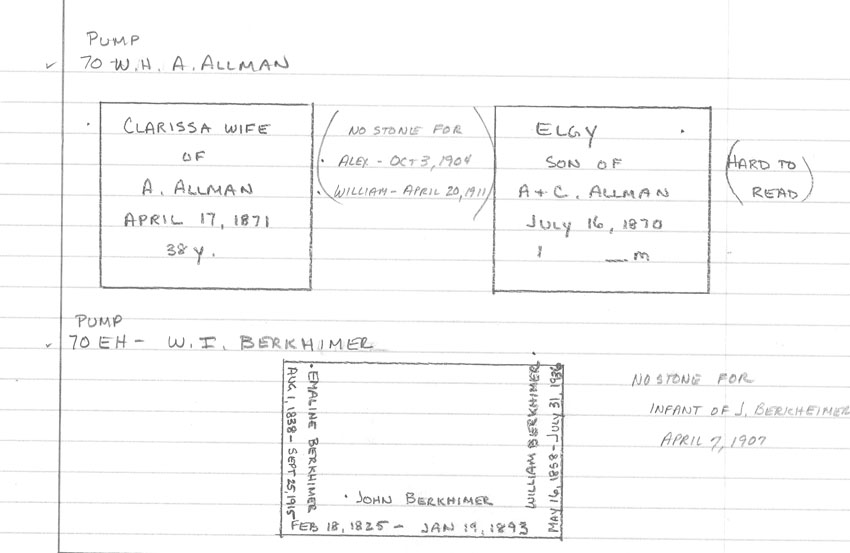 PUMP
70 W.H. A. ALLMAN
CLARISSA WIFE
OF
A. ALLMAN
APRIL 17, 1871
38 Y.
(NO STONE FOR
ALEX - OCT 3, 1904
WILLIAM - APRIL 20, 1911)
ELGY
SON OF
A + C. ALLMAN
JULY 16, 1870
1 __ M
(HARD TO
READ)
PUMP
70 EH - W. I. BERKHIMER
EMALINE BERKHIMER
AUG 1, 1838 - SEPT 25, 1915
JOHN BERKHIMER
FEB 18, 1825 - JAN 19, 1893
WILLIAM BERKHIMER
MAY 16, 1858 - JULY 31,
NO STONE FOR
INFANT OF J. BERKHEIMER
APRIL 7, 1907